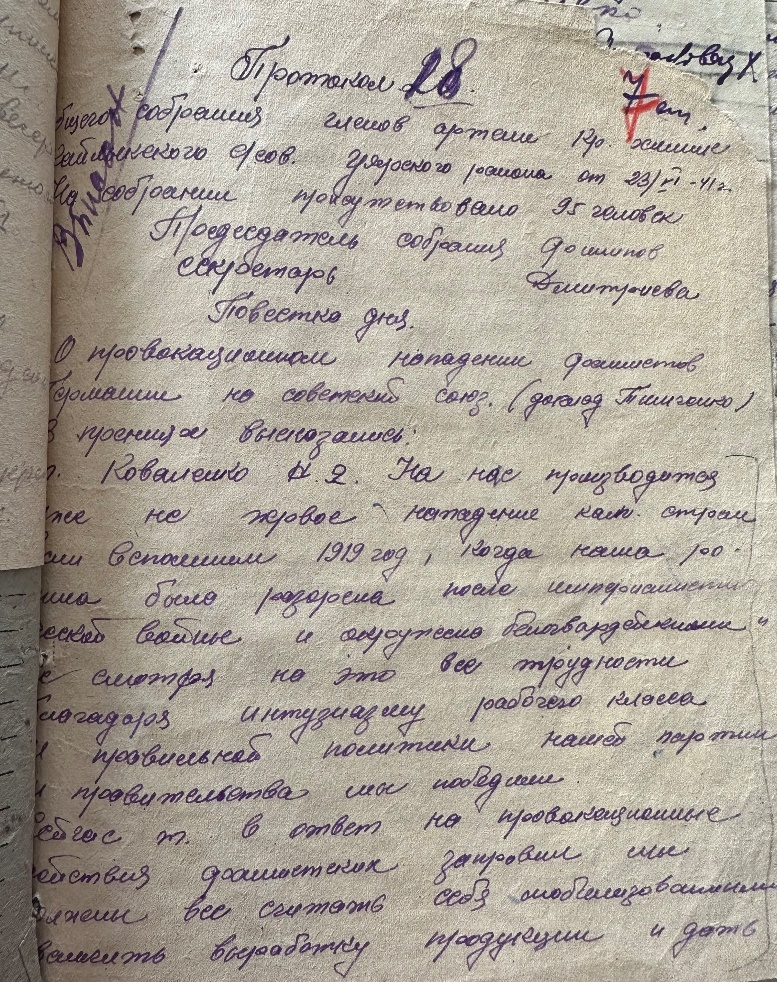 Протокол 18.
7 ст.
бщего собрания членов артели Кр. химик
с/сов. Уярского района от 23/VI-41 г.
На собрании присутствовало 95 человек
Председатель собрания Филипов
секретарь Дмитриева
Повестка дня.
О провокационном нападении фашистов
Германии на советский союз. (доклад Тимченко)
В прениях высказались:
т. Коваленко Н. Я. На нас производится
же не первое нападение кап. стран
сли вспомним 1919 год, когда наша ро-
ина была разорена после империалисти
ческой войны и окружена белогвардейскими
е смотря на это все трудности
лагодаря интузиазму рабочего класса
и правильной политики нашей партии
и правительства мы победили.
Сейчас т. в ответ на провокационные
ействия фашистских заправил мы
олжны все считать себя мобилизованными
выработку продукции и дать